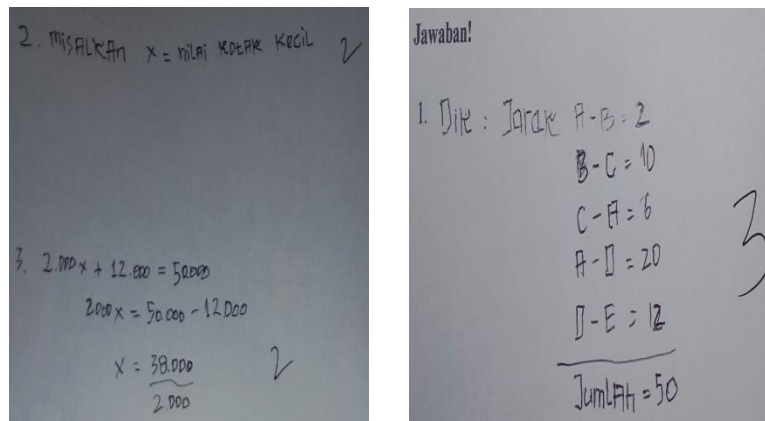 2. MISALKAn x = nilai kotak kecil 2
3. 2.000x + 12.000 = 50.000
2000x = 50.000 - 12000
x = 38.000
2.000
2
Jawaban!
1. Dik : Jarak A-B = 2
B-C = 10
C-A = 6
A-D = 20
D-E = 12
JumlAh = 50
3